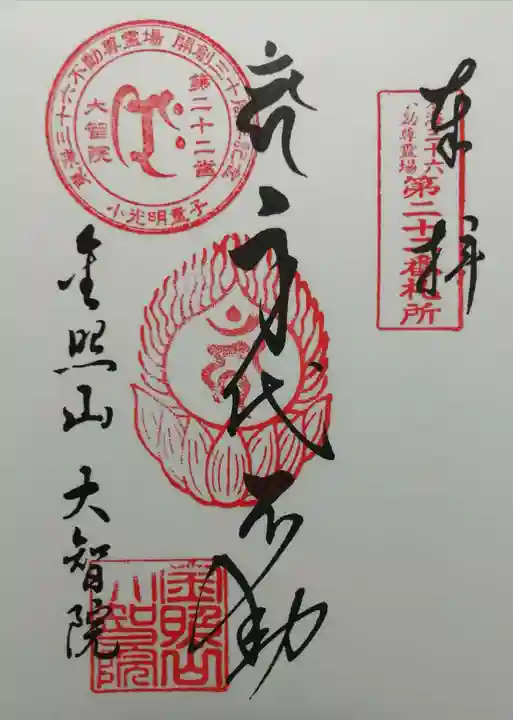 奉拝
東海三十六
不動尊霊場
第二十二番札所
身代不動
東海三十六不動尊霊場 開創三十周年記念
第二十二番
大智院
小光明童子
金照山 大智院
金照山
大智院